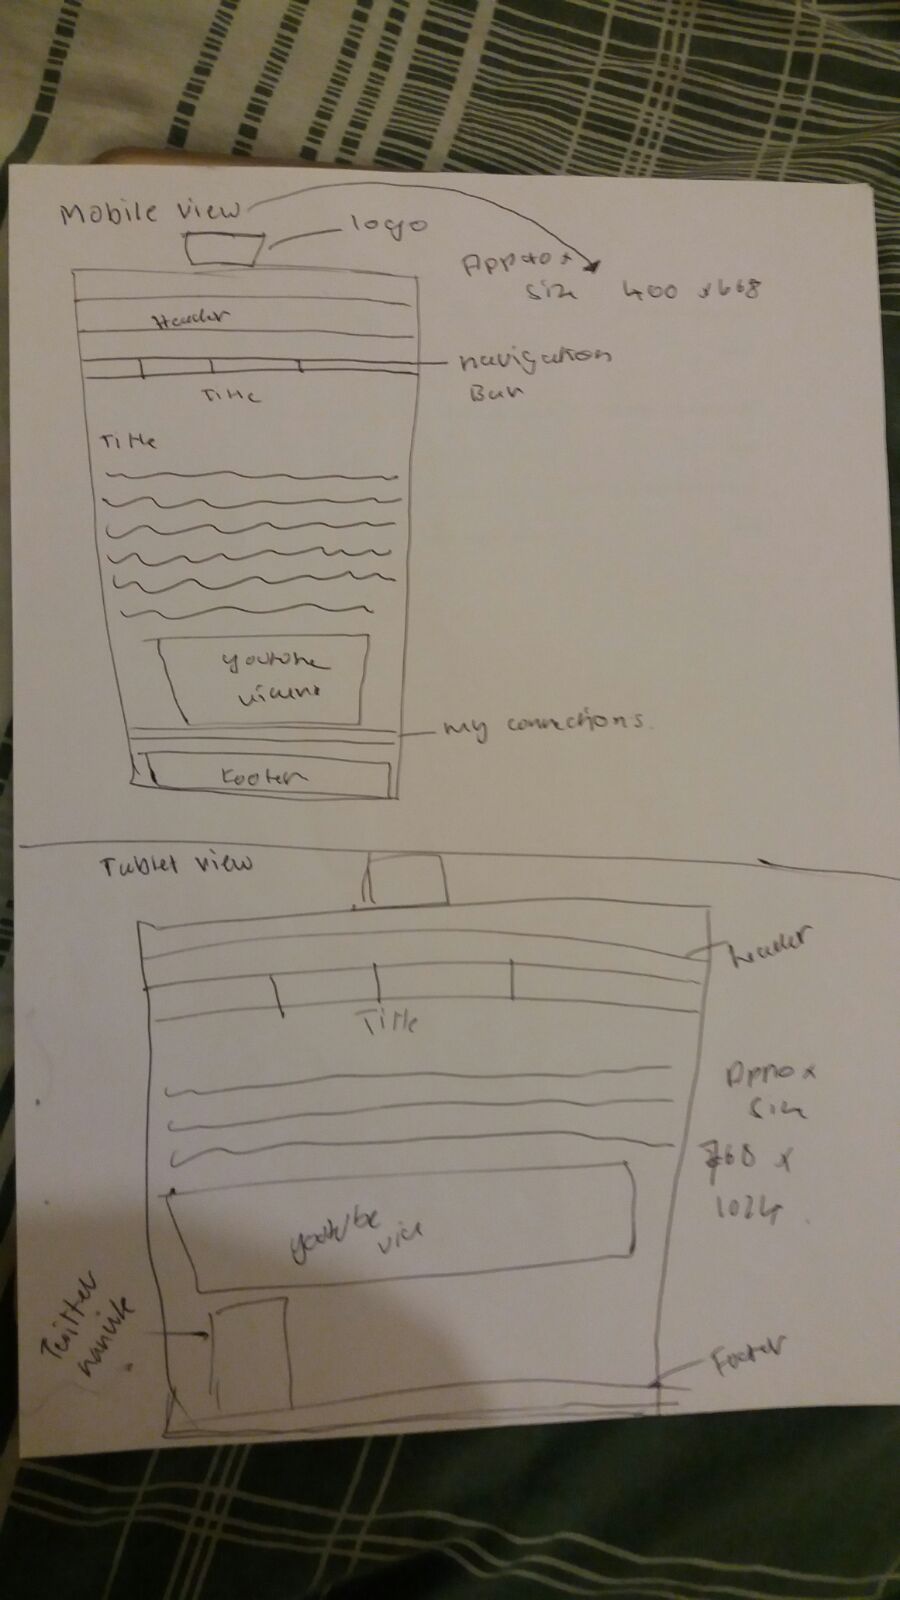 Mobile view
logo
Approx
size 400 x 668
Header
navigation
Bar
Title
Title
youtube
my connections.
Footer
Tablet view
header
Title
Approx
size
768 x
1024.
youtube
Twitter
Footer